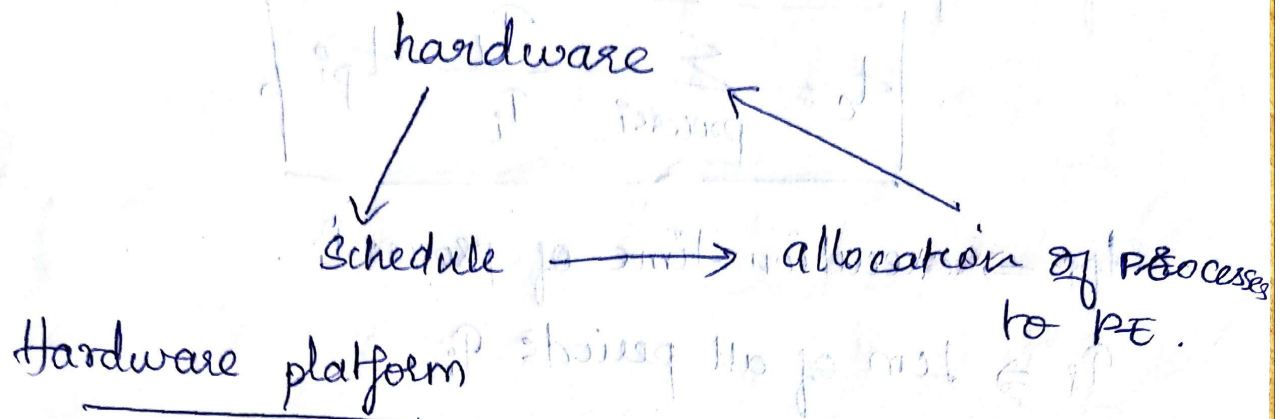 hardware
Schedule → allocation of processes
to PE.
Hardware platform